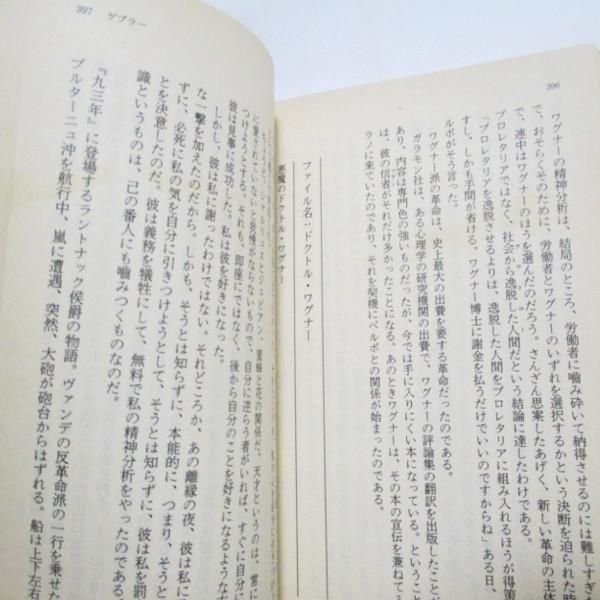 396
ワグナーの精神分析は、結局のところ、労働者に嚙み砕いて納得させるのには難しすぎた
で、おそらくそのために、労働者とワグナーのいずれを選択するかという決断を迫られた時
で、連中はワグナーのほうを選んだのだろう。さんざん思案したあげく、新しい革命の主体
プロレタリアではなく、社会から逸脱した人間だという結論に達したわけである。
「プロレタリアを逸脱させるよりは、逸脱した人間をプロレタリアに組み入れるほうが得策
すし、しかも手間が省ける。ワグナー博士に謝金を払うだけでいいのですからね」ある日、
ルボがそう言った。
ワグナー派の革命は、史上最大の出費を要する革命だったのである。
ガラモン社は、ある心理学の研究機関の出費で、ワグナーの評論集の翻訳を出版したことが
あり、内容は専門色の強いものだったが、今では手に入りにくい本になっている。ということ
は、彼の信者がそれだけ多かったことになる。あのときワグナーは、その本の宣伝を兼ねてミ
ラノに来ていたのであり、それを契機にベルボとの関係が始まったのである。
ファイル名:ドクトル・ワグナー
悪魔のドクトル・ワグナー
397 ゲブラー
スとジュピアン、蜜蜂と花の関係だ。天才というのは、常に
に愛されていないと我慢がならないもので、自分に逆らう者がいれば、すぐに自分に
つけようとする。しかも、即座にではなく、後から自分のことを好きになるような
彼は見事に成功した。私は彼を好きになった。
しかし、彼は私に謝ったわけではない。それどころか、あの離縁の夜、彼は私に
な一撃を加えたのだから。しかも、そうとは知らずに、本能的に、つまり、そう
ずに、必死に私の気を自分に引きつけようとして、そうとは知らずに、彼は私を罰
とを決意したのだ。彼は義務を犠牲にして、無料で私の精神分析をやったのである
識というものは、己の番人にも嚙みつくものなのだ。
『九三年』に登場するラントナック侯爵の物語。ヴァンデの反革命派の一行を乗せた
ブルターニュ沖を航行中、嵐に遭遇、突然、大砲が砲台からはずれる。船は上下左右